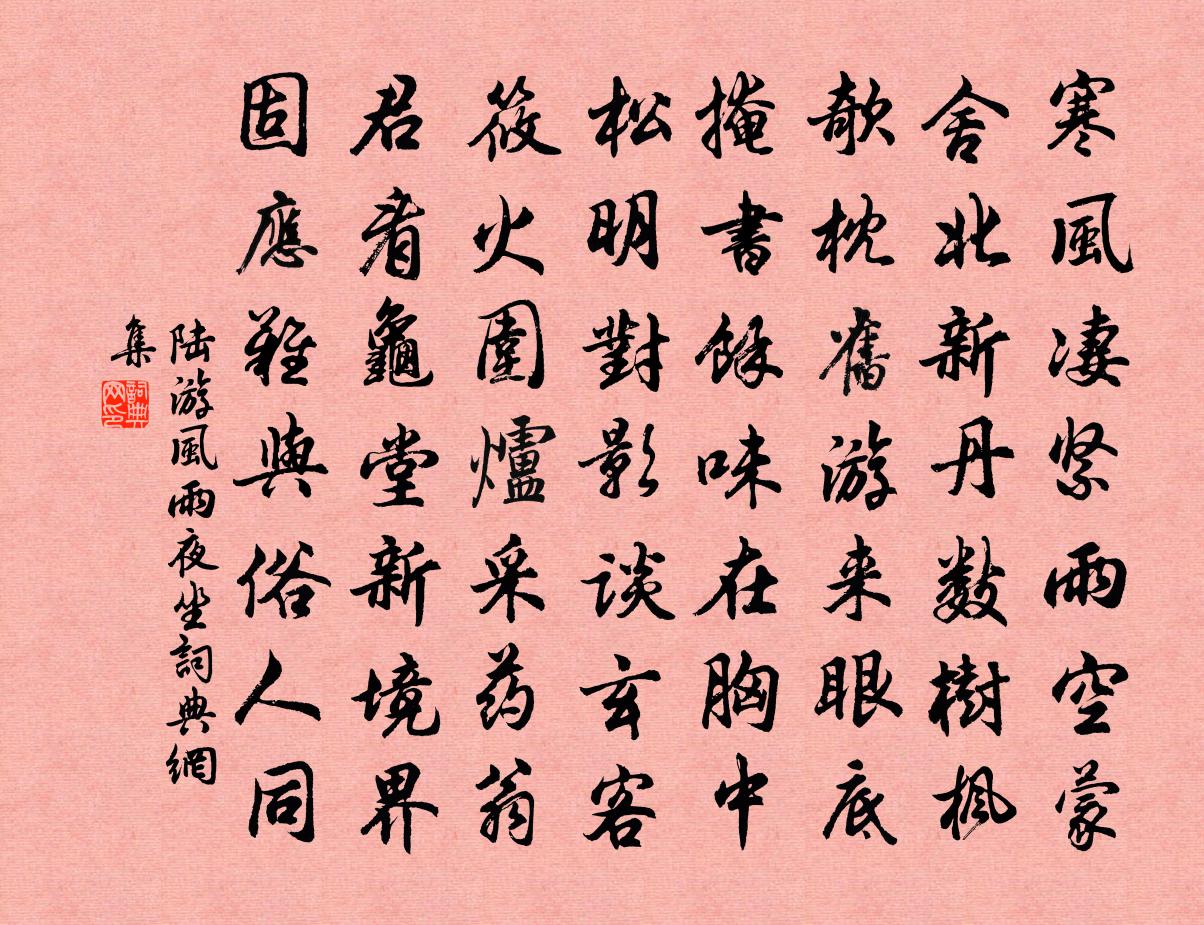 寒風凄紧雨空蒙
舍北新丹數樹楓
欹枕舊游来眼底
掩書餘味在胸中
松明對影谈玄客
筱火圍爐采药翁
君看龜堂新境界
固應難與俗人同
陆游風雨夜坐詞典網
集
詞典
网印